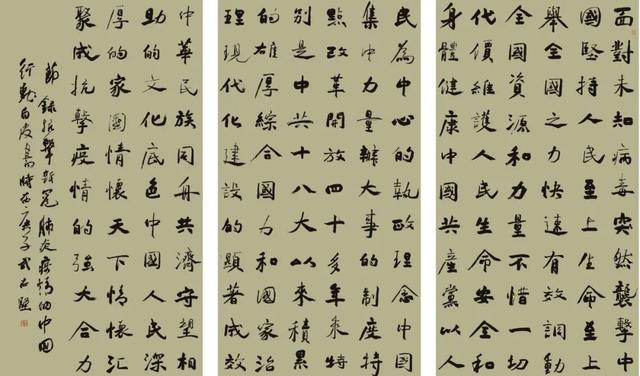 面對未知病毒突然襲擊中
國堅持人民至上生命至上
舉全國之力快速有效調動
全國資源和力量不惜一切
代價維護人民生命安全和
身體健康中國共產黨以人
民為中心的執政理念中國
集中力量辦大事的制度特
點改革開放四十多年来特
別是中共十八大以来積累
的雄厚綜合國力和國家治
理現代化建設的顯著成效
中華民族同舟共濟守望相
助的文化底色中國人民深
厚的家國情懷天下情懷匯
聚成抗擊疫情的強大合力
節錄抗擊新冠肺炎疫情的中國
行動白皮書時在庚子